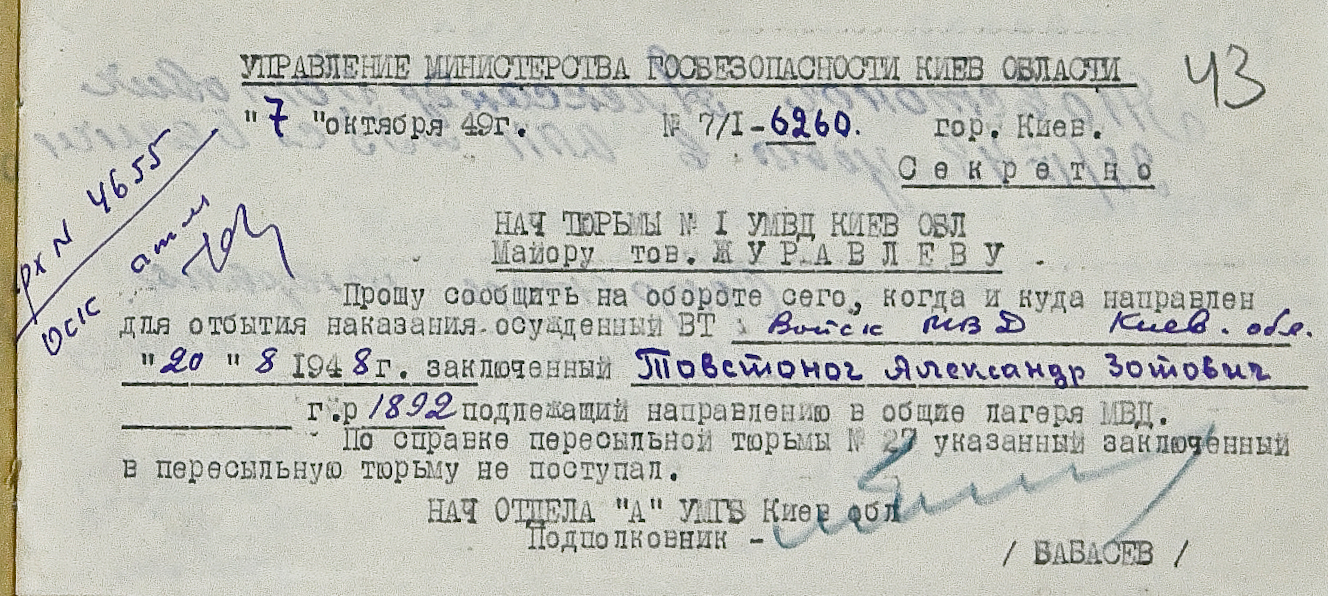 УПРАВЛЕНИЕ МИНИСТЕРСТВА ГОСБЕЗОПАСНОСТИ КИЕВ ОБЛАСТИ
43
"7 "октября 49г. № 7/I-6260. гор. Киев.
Секретно
вх N 4655
НАЧ ТЮРЬМЫ № I УМВД КИЕВ ОБЛ
Майору тов. ЖУРАВЛЕВУ
Прошу сообщить на обороте сего, когда и куда направлен
для отбытия наказания осужденный ВТ Войск МВД Киев. обл.
"20 " 8 1948г. заключенный Товстоног Александр Зотович
г.р 1892 подлежащий направлению в общие лагеря МВД.
По справке пересыльной тюрьмы № 27 указанный заключенный
в пересыльную тюрьму не поступал.
НАЧ ОТДЕЛА "А" УМГБ Киев обл
Подполковник -
/ БАБАСЕВ /